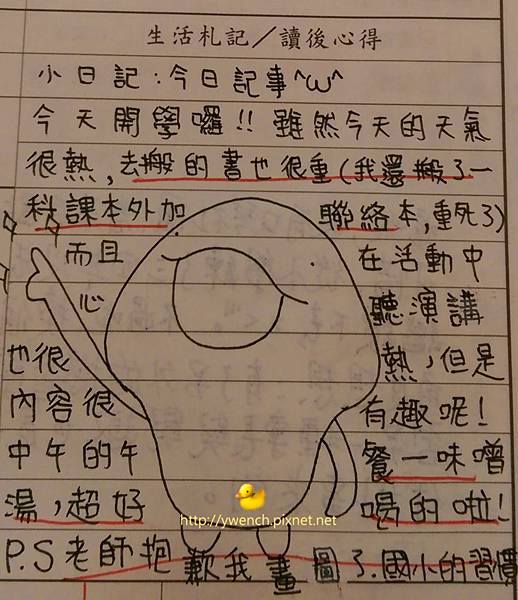 生活札記／讀後心得
小日記:今日記事^ω^
今天開學囉!!雖然今天的天氣
很熱,去搬的書也很重(我還搬了一
秋課本外加 聯絡本,重死了)
而且 在活動中
心 聽演講
也很 熱,但是
內容很 有趣呢!
中午的午 餐—味噌
湯,超好 喝的啦!
http://ywench.pixnet.net
P.S老師抱歉我畫圖了.國小的習慣